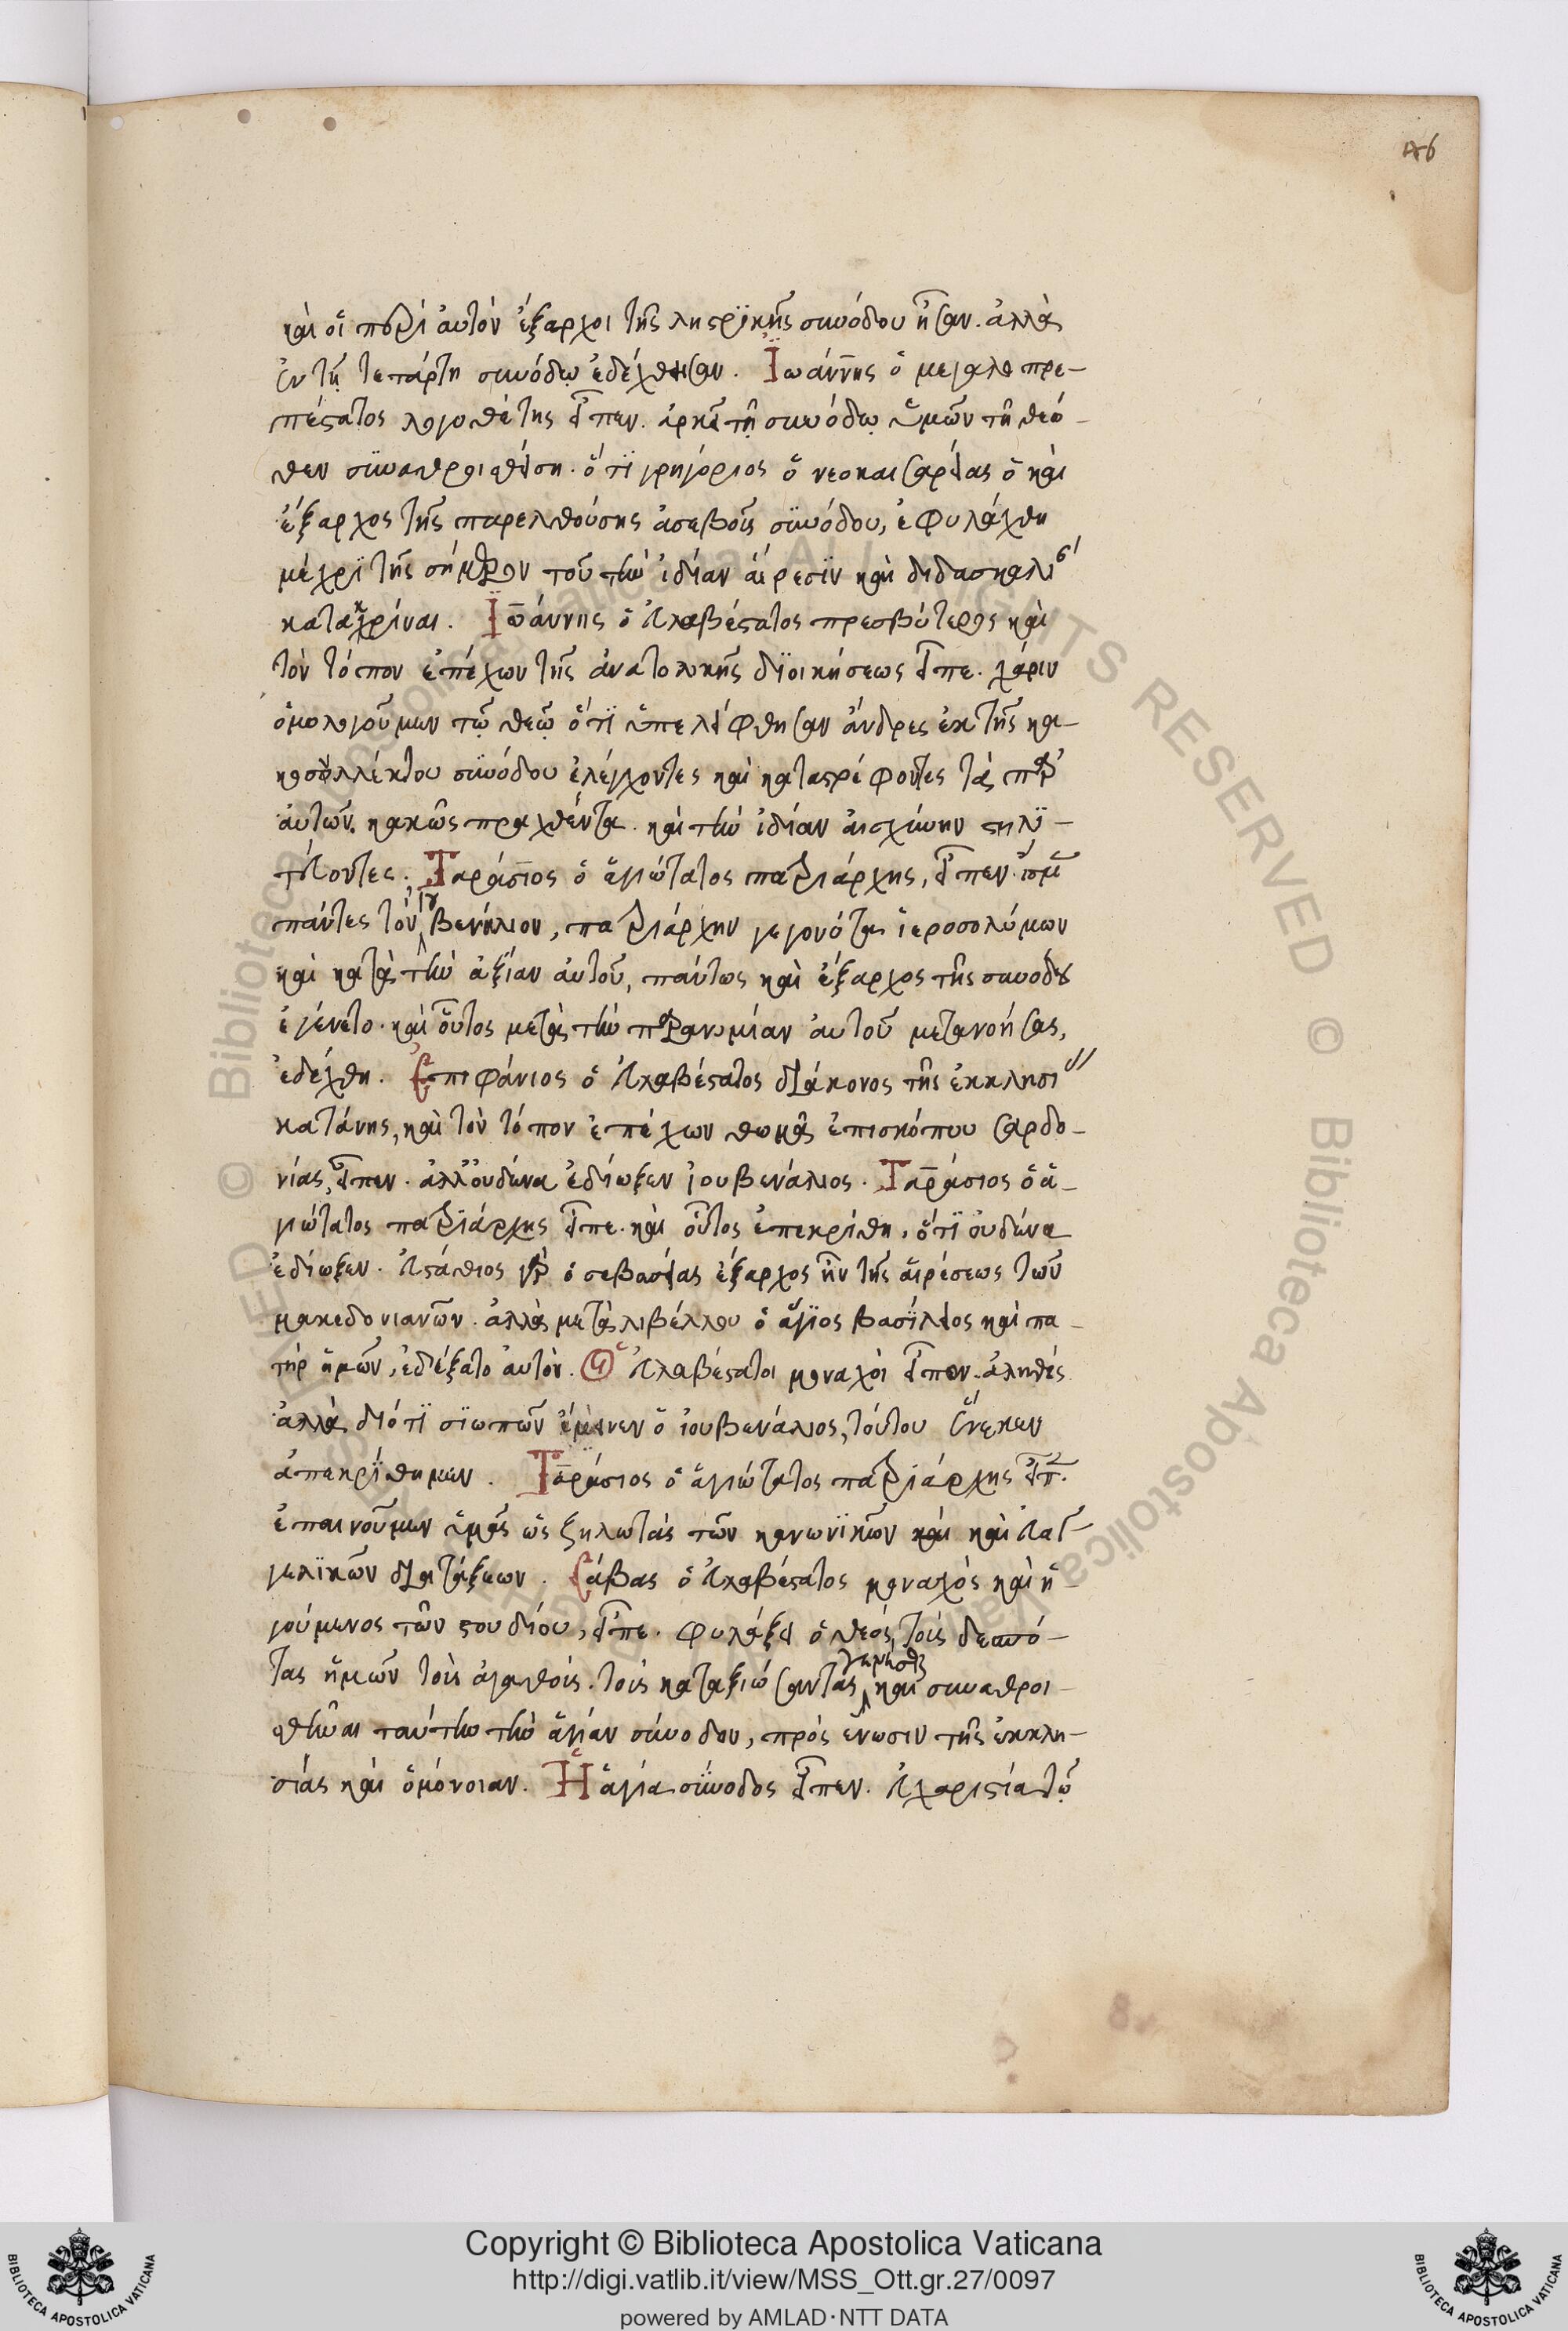 46
καὶ οἱ περὶ αὐτὸν ἔξαρχοι τῆς ληστρϊκῆς συνόδου ἦσαν. ἀλλὰ
ἐν τῇ τετάρτῃ συνόδῳ ἐδέχθησαν. Ἰωάννης ὁ μεγαλοπρε-
πέστατος λογοθέτης εἶπεν. ἀρκεῖ τῇ συνόδῳ ὑμῶν τῇ θεό-
θεν συναθροισθείσῃ. ὅτϊ γρηγόριος ὁ νεοκαισαρείας ὁ καὶ
ἔξαρχος τῆς παρελθούσης ἀσεβοῦς συνόδου, ἐφυλάχθη
μέχρϊ τῆς σήμερον τοῦ τὴν ἰδίαν αἵρεσϊν καὶ διδασκαλί
κατακρίναι. Ἰωάννης ὁ εὐλαβέστατος πρεσβύτερος καὶ
τὸν τόπον ἐπέχων τῆς ἀνατολικῆς διοικήσεως εἶπε. χάριν
ὁμολογοῦμεν τῷ θεῷ ὅτϊ ὑπελείφθησαν ἄνδρες ἐκ τῆς κα-
κοσυλλέκτου συνόδου ἐλέγχοντες καὶ καταστρέφοντες τὰ παρ
αὐτῶν κακῶς πραχθέντα. καὶ τὴν ἰδίαν αἰσχύνην στηλϊ-
τεύοντες. Ταράσιος ὁ ἁγιώτατος πατριάρχης, εἶπεν. ἴσμεν
πάντες τὸν ἰουβενάλιον, πατριάρχην γεγονότα ἱεροσολύμων
καὶ κατὰ τὴν ἀξίαν αὐτοῦ, πάντως καὶ ἔξαρχος τῆς συνόδου
ἐγένετο. καὶ οὗτος μετὰ τὴν παρανομίαν αὐτοῦ μετανοήσας,
ἐδέχθη. Ἐπιφάνιος ὁ εὐλαβέστατος διάκονος τῆς ἐκκλησί
κατάνης, καὶ τὸν τόπον ἐπέχων θωμᾶ ἐπισκόπου σαρδο-
νίας, εἶπεν. ἀλλ᾽ οὐδένα ἐδίωξεν ἰουβενάλιος. Ταράσιος ὁ ἁ-
γιώτατος πατρϊάρχης εἶπε. καὶ οὗτος ἐπεκρίθη, ὅτϊ οὐδένα
ἐδίωξεν. εὐστάθιος γὰρ ὁ σεβαστείας ἔξαρχος ἦν τῆς αἱρέσεως τῶν
μακεδονιανῶν. ἀλλὰ μετὰ λιβέλλου ὁ ἅγϊος βασίλειος καὶ πα-
τὴρ ἡμῶν, ἐδέξατο αὐτόν. Οἱ εὐλαβέστατοι μοναχοὶ εἶπον. ἀληθές
ἀλλὰ διότϊ σϊωπῶν ἔμεινεν ὁ ἰουβενάλιος, τούτου ἕνεκεν
ἀπεκρίθημεν. Ταράσιος ὁ ἁγιώτατος πατρϊάρχης εἶπ.
ἐπαινοῦμεν ὑμᾶς ὡς ζηλωτὰς τῶν κανωνϊκῶν καὶ καὶ εὐαγ-
γελϊκῶν διατάξεων. Σάβας ὁ εὐλαβέστατος μοναχὸς καὶ ἡ-
γούμενος τῶν στουδίου, εἶπε. φυλάξει ὁ θεὸς τοὺς δεσπό-
τας ἡμῶν τοὺς ἀγαθούς. τοὺς καταξιώσαντας γενέσθαι καὶ συναθροι-
σθῆναι ταύτην τὴν ἁγίαν σύνοδον, πρὸς ἕνωσιν τῆς ἐκκλη-
σίας καὶ ὁμόνοιαν. Ἡ ἁγία σύνοδος εἶπεν. εὐχαριστία τῷ
Copyright © Biblioteca Apostolica Vaticana
http://digi.vatlib.it/view/MSS_Ott.gr.27/0097
powered by AMLAD·NTT DATA